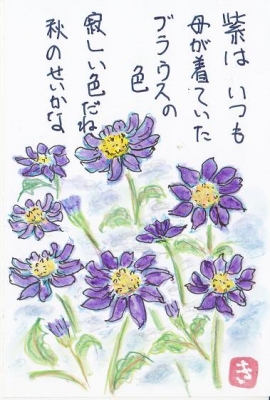 紫は いつも
母が着ていた
ブラウスの
色
寂しい色だね
秋のせいかな
き